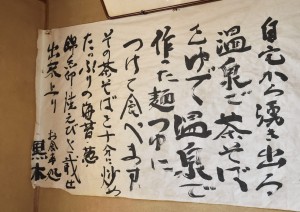 自宅から湧き出る
温泉で茶そば
をゆでて温泉で
作った麺つゆに
つけて食べます
その茶そばを十分に炒め
たっぷりの海苔・葱
錦糸卵 生えびを載せ
出来上り
お食事処
黒木